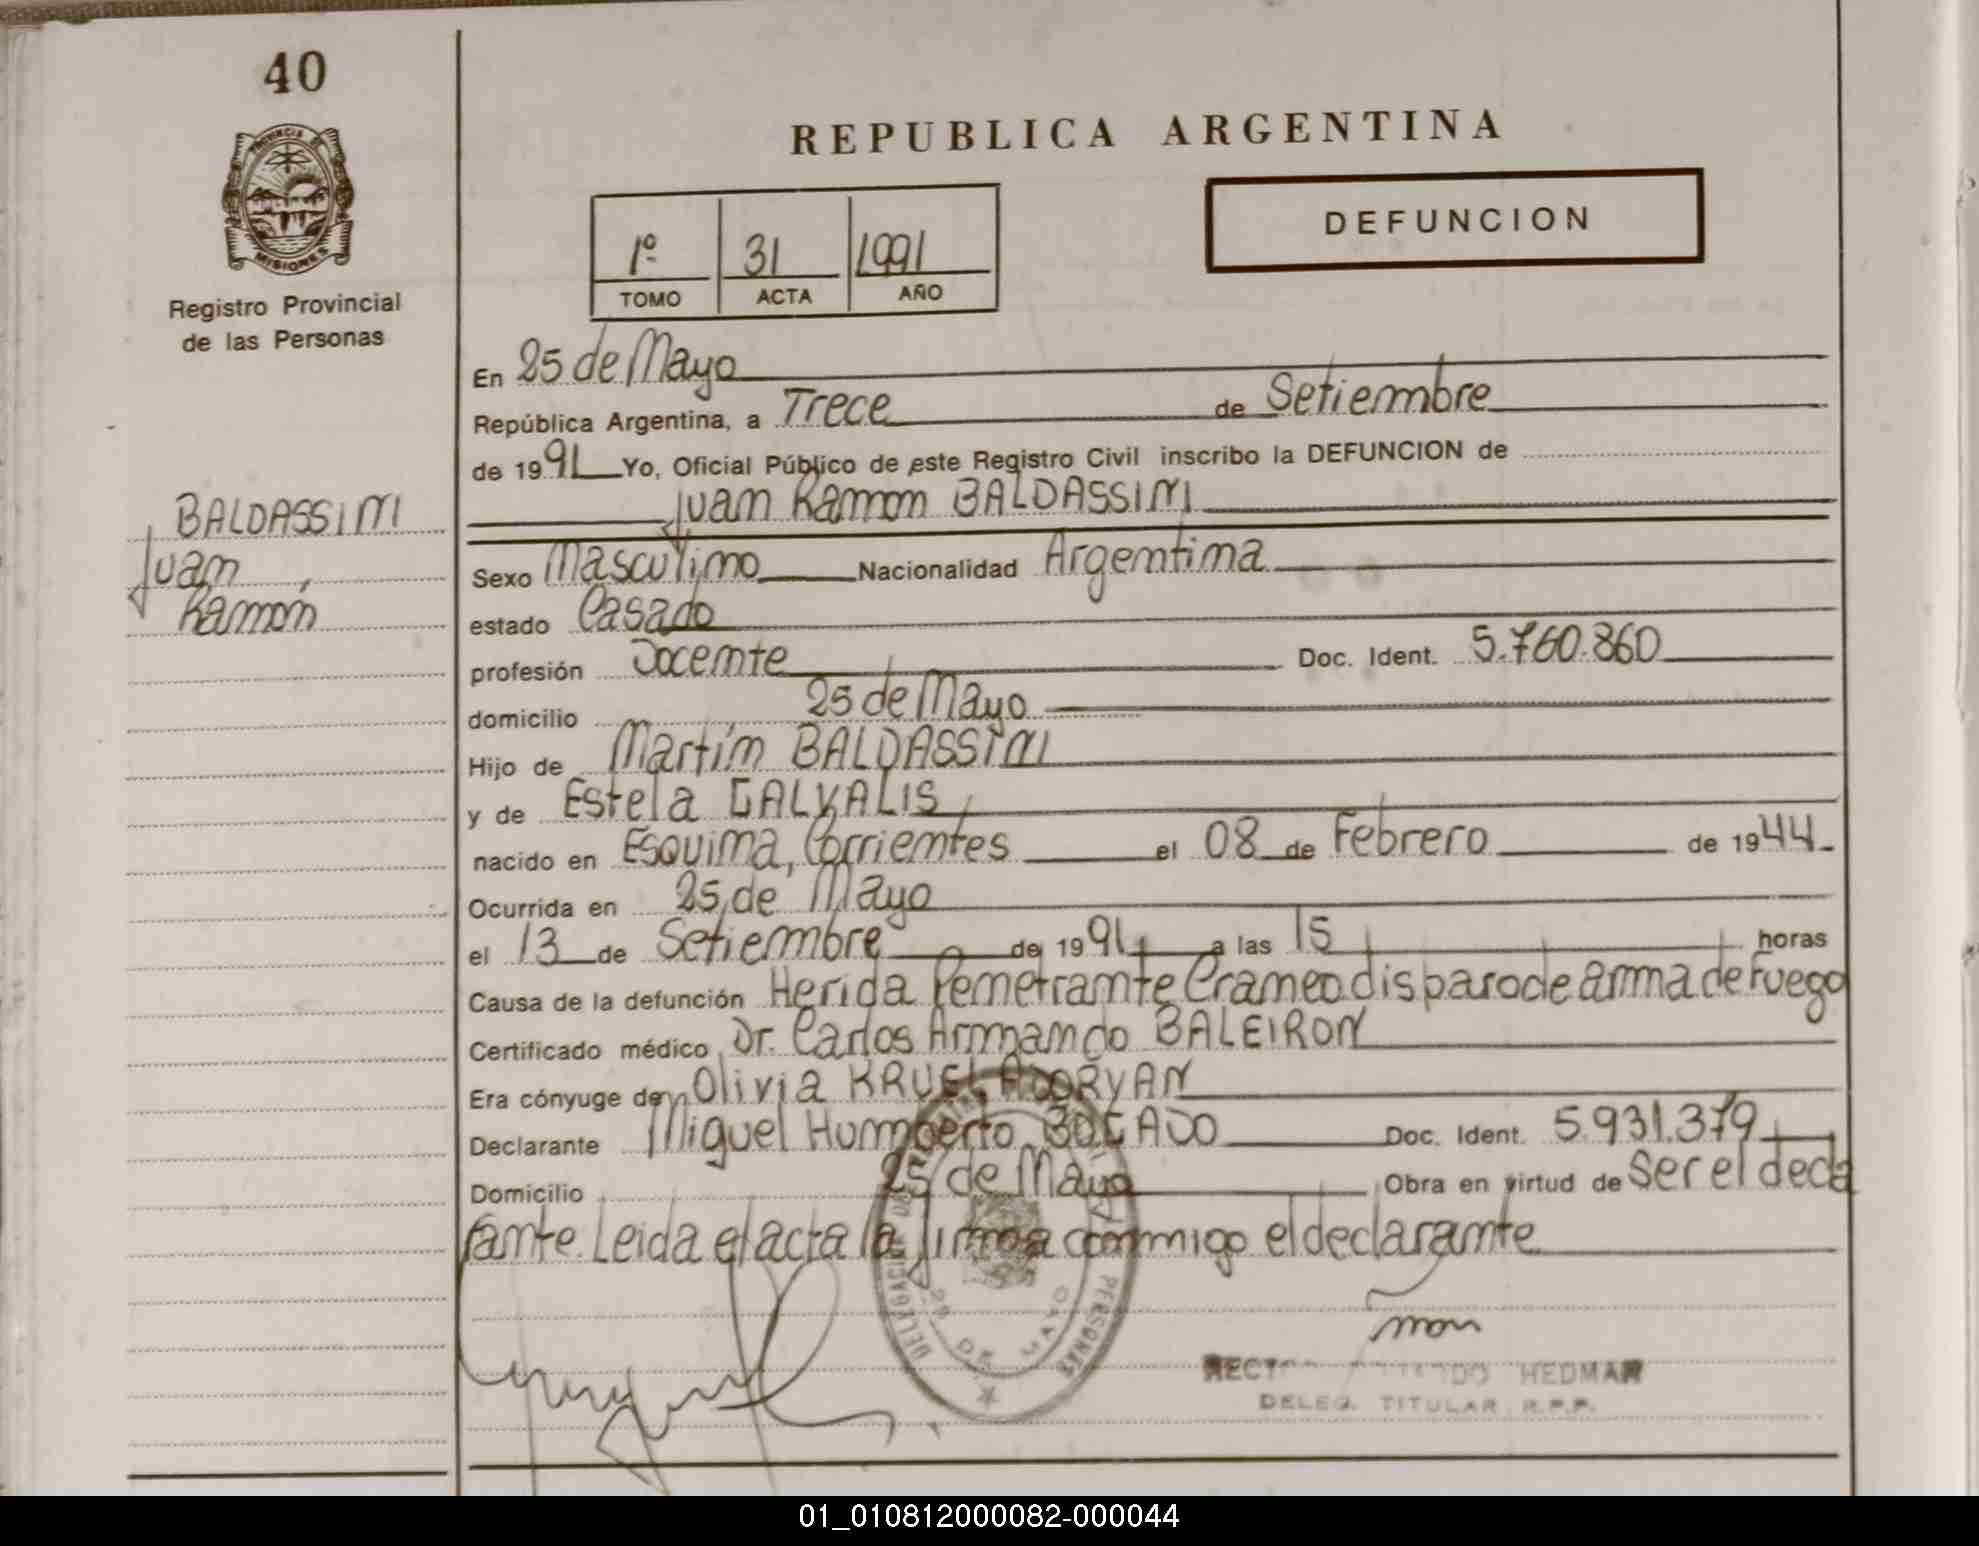 40
PROVINCIA DE
MISIONES
Registro Provincial
de las Personas
BALDASSINI
Juan
Ramón
REPUBLICA ARGENTINA
DEFUNCION
1º 31 1991
TOMO ACTA AÑO
En 25 de Mayo
República Argentina, a Trece de Setiembre
de 1991 Yo, Oficial Público de este Registro Civil inscribo la DEFUNCION de
Juan Ramon BALDASSINI
Sexo Masculino Nacionalidad Argentina
estado Casado
profesión Docente Doc. Ident. 5.760.860
domicilio 25 de Mayo
Hijo de Martín BALDASSINI
y de Estela GALVALIS
nacido en Esquina, Corrientes el 08 de Febrero de 1944
Ocurrida en 25 de Mayo
el 13 de Setiembre de 1991 a las 15 horas
Causa de la defunción Herida Penetrante Craneo disparo de arma de fuego
Certificado médico Dr. Carlos Armando BALEIRON
Era cónyuge de Olivia KRUEL ADORYAN
Declarante Miguel Humberto BOGADO Doc. Ident. 5.931.379
Domicilio 25 de Mayo Obra en virtud de Ser el decla
rante. Leida el acta la firma conmigo el declarante
DELEGACION PERSONAS
25 DE MAYO
HEDMAN
DELEG. TITULAR R.P.P.
01_010812000082-000044